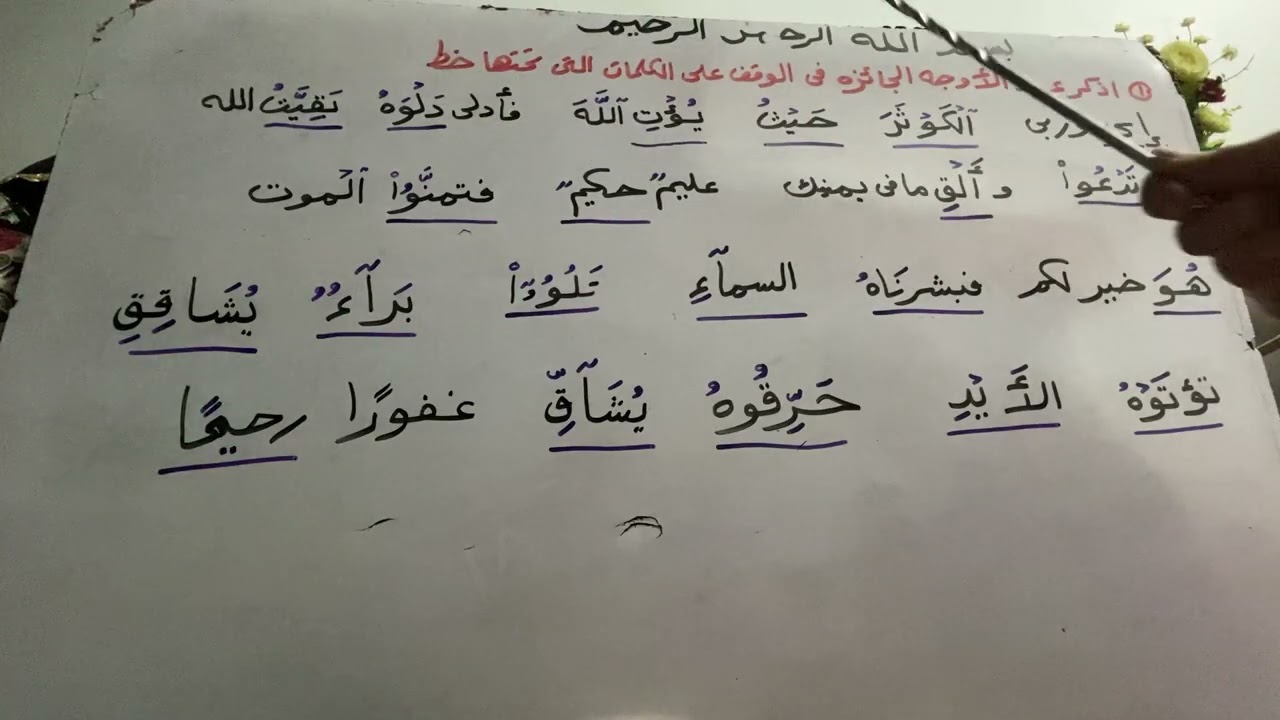 الله الرحمن الرحيم
① اذكر الأوجه الجائزه فى الوقف على الكلمات التى تحتها خط
وربى ٱلْكَوْثَرَ حَيْثُ يُؤْتِ ٱللَّهَ فأدلى دَلْوَهُ بَقِيَّتُ الله
تَدْعُواْ وأَلْقِ ما فى يمينك عليمٌ حكيمٌ فتمنَّوُاْ ٱلْموت
هُوَ خير لكم فبشرنَاهُ السمآءِ تَلْوُۥٓاْ بَرَآءٌ يُشَاقِقِ
تؤتَوْهُ الأَيْدِ حَرِّقُوهُ يُشَآقِّ غفورًا رحيمًا